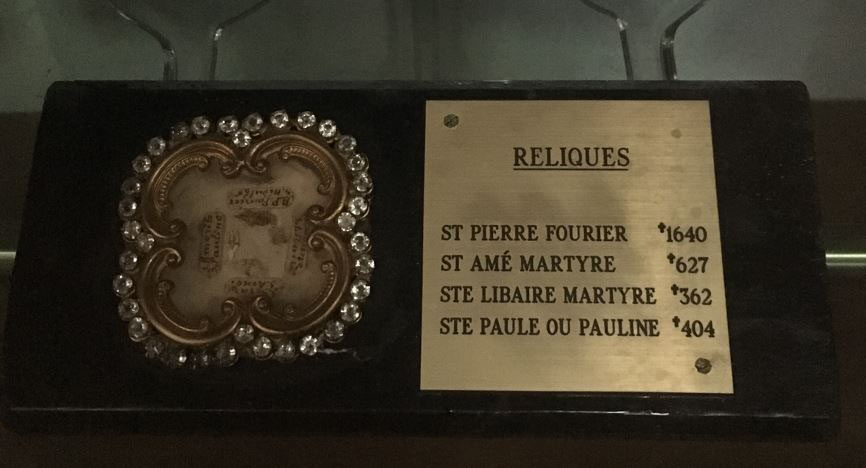 RELIQUES
ST PIERRE FOURIER ✝1640
ST AMÉ MARTYRE ✝627
STE LIBAIRE MARTYRE ✝362
STE PAULE OU PAULINE ✝404